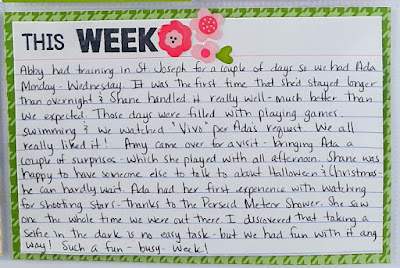 THIS WEEK
Abby had training in St. Joseph for a couple of days so we had Ada
Monday - Wednesday. It was the first time that she'd stayed longer
than overnight & Shane handled it really well - much better than
we expected. Those days were filled with playing games,
swimming & we watched 'Vivo' per Ada's request. We all
really liked it! Amy came over for a visit - bringing Ada a
couple of surprises - which she played with all afternoon. Shane was
happy to have someone else to talk to about Halloween & Christmas -
he can hardly wait. Ada had her first experience with watching
for shooting stars - thanks to the Perseid Meteor Shower. She saw
one the whole time we were out there. I discovered that taking a
selfie in the dark is no easy task - but we had fun with it any
way! Such a fun - busy - week!